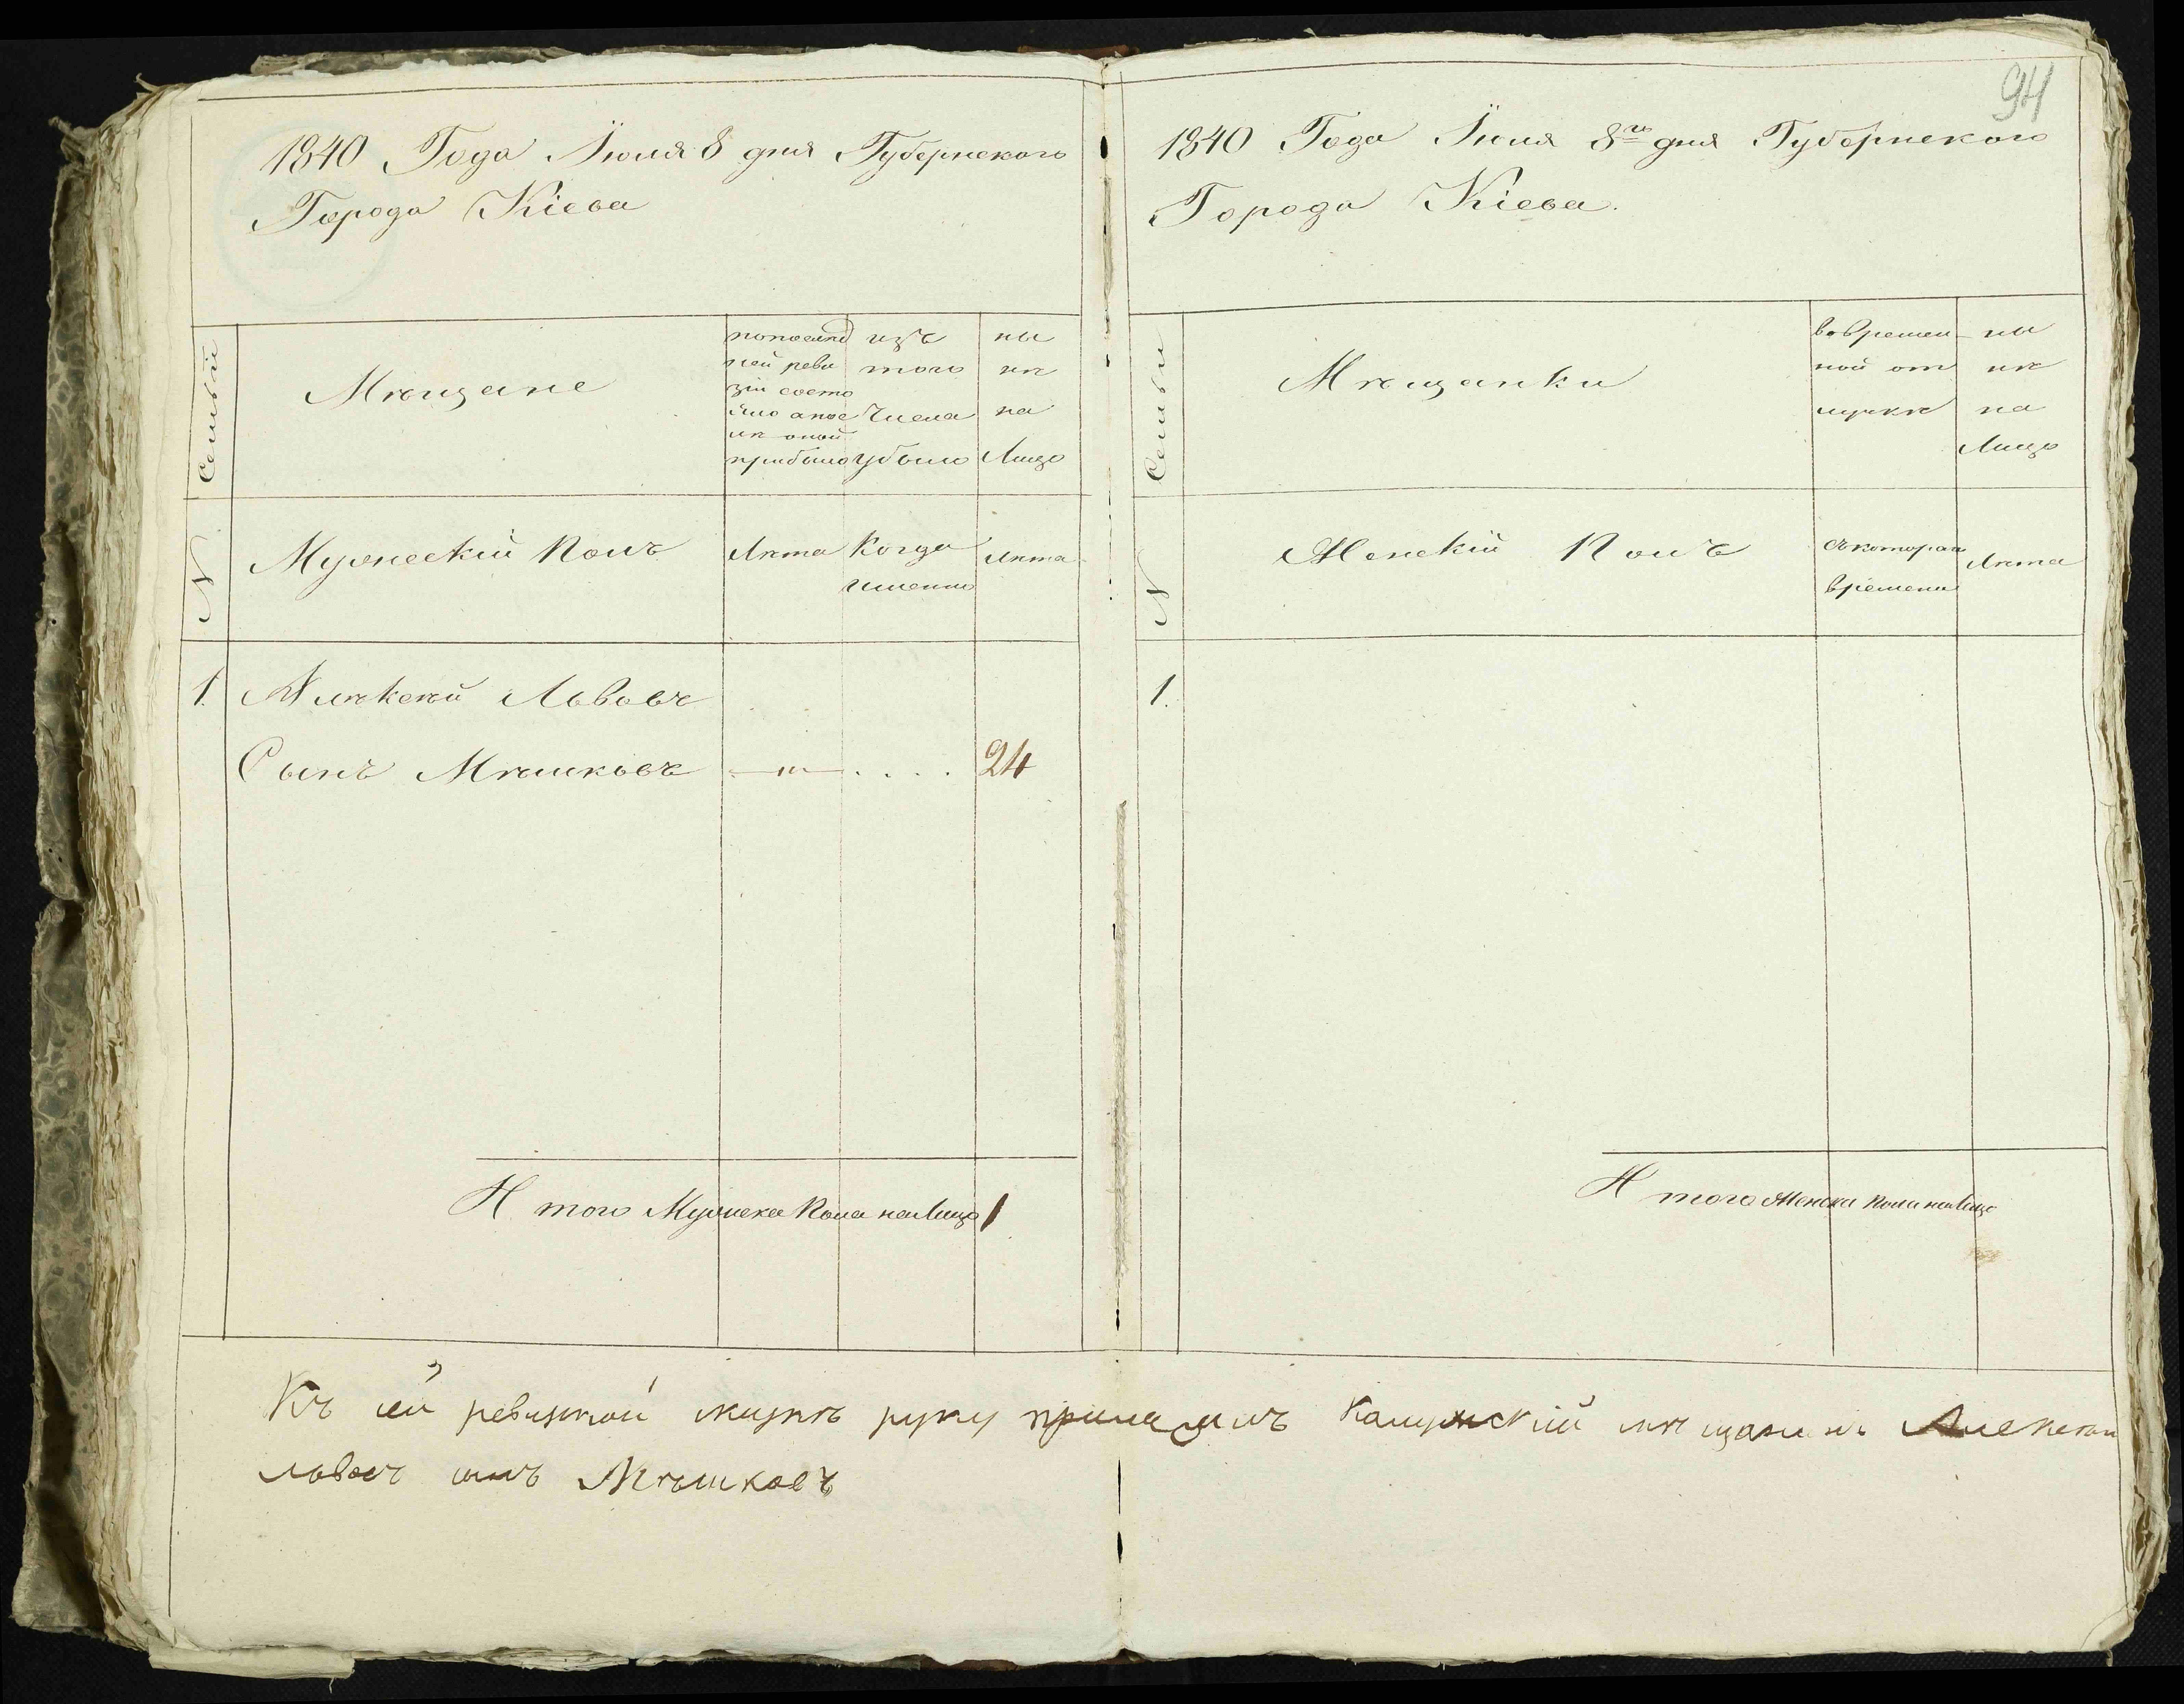 94
1840 Года Июля 8 дня Губернского
Города Кіева
Семьи
№
Мѣщане
попослѣд
ней реви
зіи состо
яло апос
лѣ оной
прибыло
изъ
того
Числа
убыло
ны
нѣ
на
Лицо
Мужескій Полъ
Лѣта
Когда
именно
Лѣта
1. Алѣксѣй Львовъ
Сынъ Мѣшковъ — " — . . . . 24
И того Мужеска Пола наЛицо 1
1840 Года Июля 8го дня Губернского
Города Кіева.
Семьи
№
Мѣщанки
воВремен
ной от
лучкѣ
ны
нѣ
на
Лицо
Женскій Полъ
съкоторого
времени
Лѣта
1.
И того Женска Пола наЛицо
Къ сей ревизской скаскѣ руку приложилъ Калужскій мѣщанинъ Алексей
львовъ сынъ Мѣшковъ